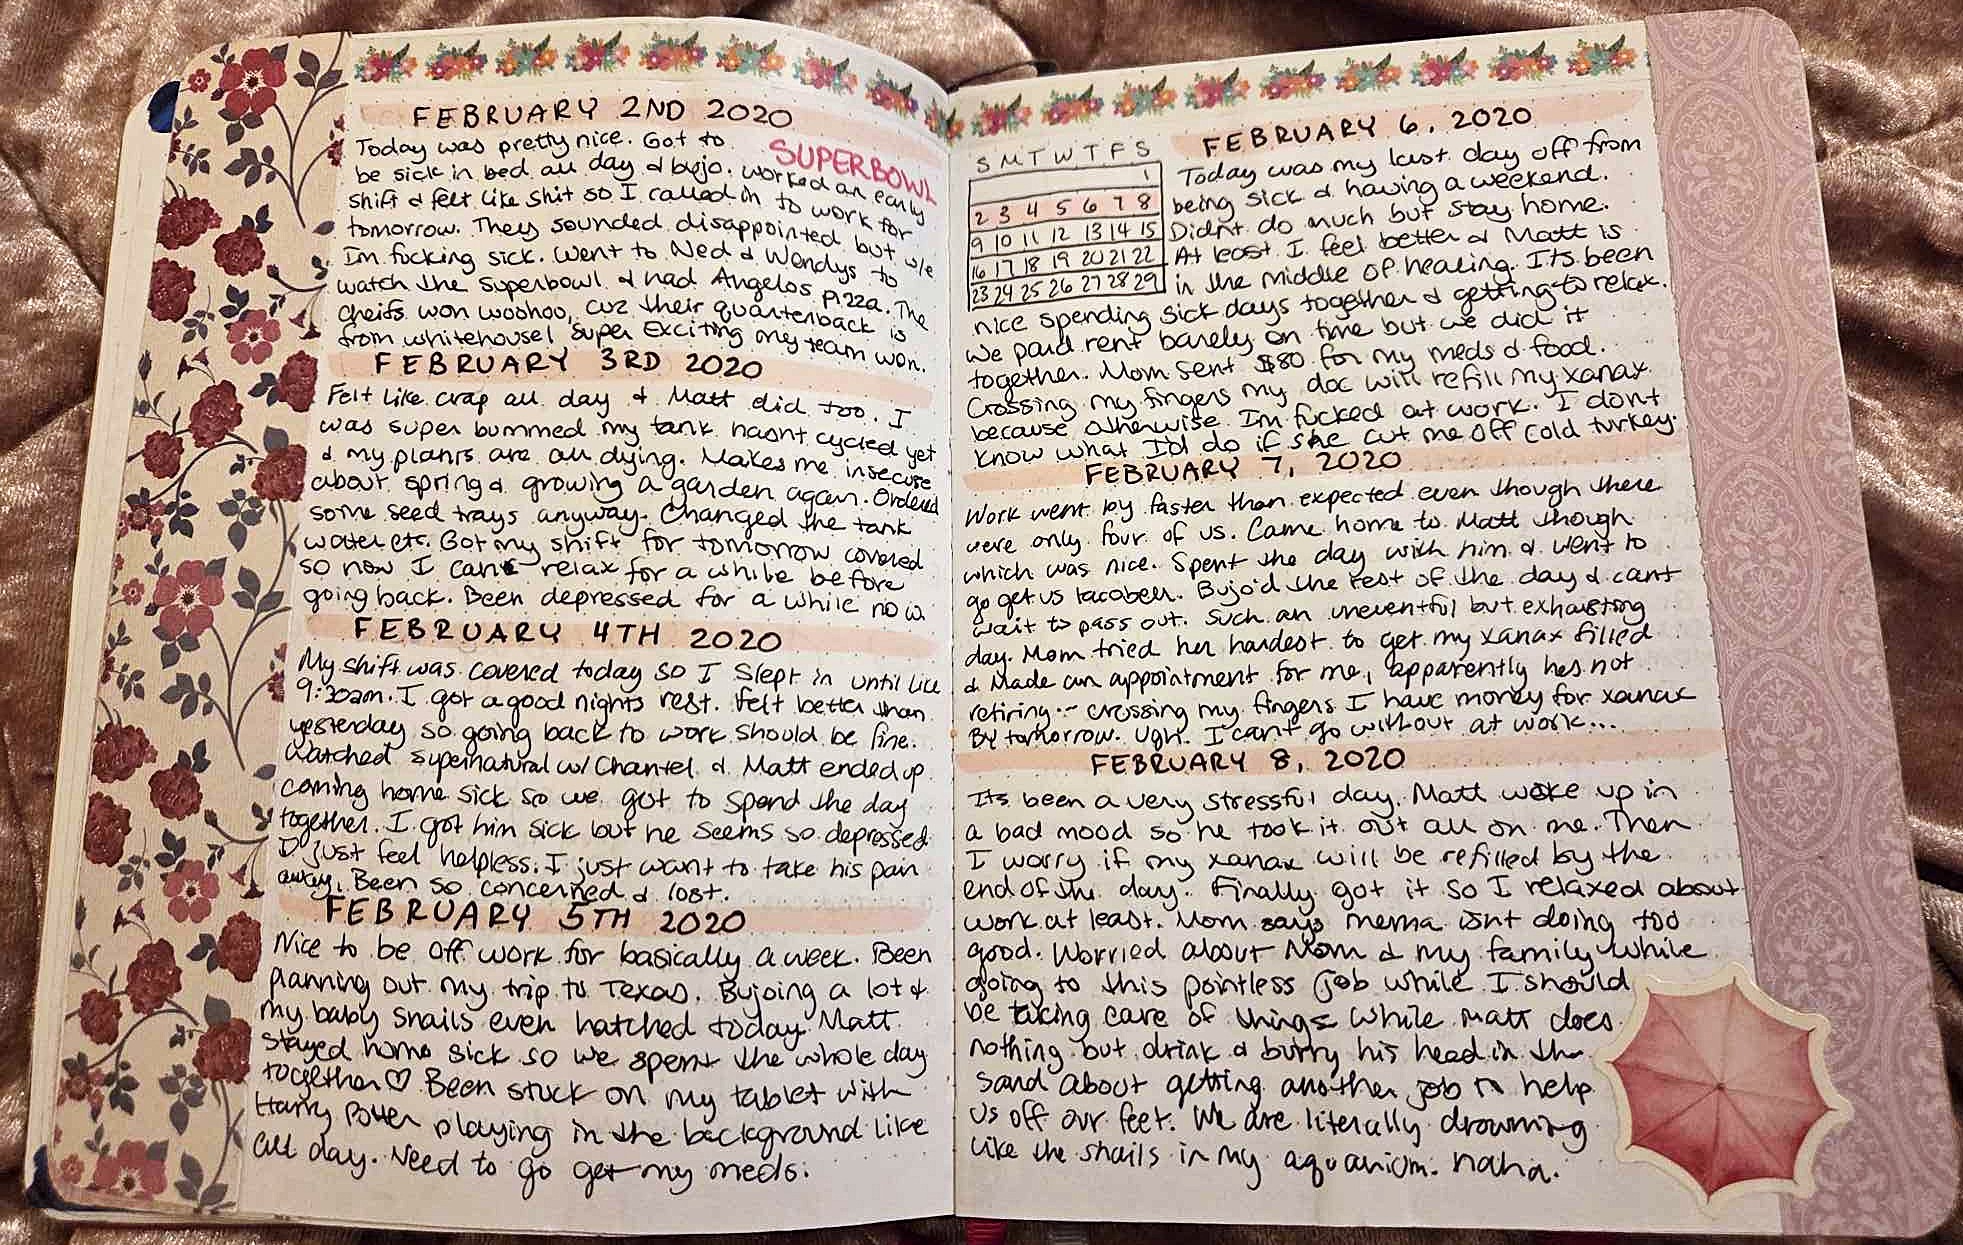 FEBRUARY 2ND 2020
SUPERBOWL
Today was pretty nice. Got to
be sick in bed all day & bujo. worked an early
shift & felt like shit so I called in to work for
tomorrow. They sounded disappointed but
Im fucking sick. Went to Ned & Wendys to
watch the superbowl & had Angelos pizza. The
cheifs won woohoo, cuz their quarterback is
from whitehouse! Super Exciting my team won.
FEBRUARY 3RD 2020
Felt like crap all day & Matt did too. I
was super bummed my tank hasnt cycled yet
& my plants are all dying. Makes me insecure
about spring & growing a garden again. Ordered
some seed trays anyway. Changed the tank
water etc. Got my shift for tomorrow covered
so now I can relax for a while before
going back. Been depressed for a while now.
FEBRUARY 4TH 2020
My shift was covered today so I slept in until like
9:30am. I got a good nights rest. Felt better than
yesterday so going back to work should be fine.
Watched supernatural w/ Chantel & Matt ended up
coming home sick so we got to spend the day
together. I got him sick but he seems so depressed
I just feel helpless. I just want to take his pain
away. Been so concerned & lost.
FEBRUARY 5TH 2020
Nice to be off work for basically a week. Been
planning out my trip to Texas. Bujoing a lot &
my baby snails even hatched today. Matt
stayed home sick so we spent the whole day
together ♡ Been stuck on my tablet with
Harry Potter playing in the background like
all day. Need to go get my meds.
S M T W T F S
1
2 3 4 5 6 7 8
9 10 11 12 13 14 15
16 17 18 19 20 21 22
23 24 25 26 27 28 29
FEBRUARY 6, 2020
Today was my last day off from
being sick & having a weekend.
Didnt do much but stay home.
At least I feel better & Matt is
in the middle of healing. Its been
nice spending sick days together & getting to relax.
We paid rent barely on time but we did it
together. Mom sent $80 for my meds & food.
Crossing my fingers my doc will refill my xanax
because otherwise Im fucked at work. I dont
know what I'd do if she cut me off cold turkey.
FEBRUARY 7, 2020
Work went by faster than expected even though there
were only four of us. Came home to Matt though
which was nice. Spent the day with him & went to
go get us tacobell. Bujo'd the rest of the day & cant
wait to pass out. Such an uneventful but exhausting
day. Mom tried her hardest to get my xanax filled
& made an appointment for me, apparently hes not
retiring -- crossing my fingers I have money for xanax
By tomorrow. Ugh. I cant go without at work...
FEBRUARY 8, 2020
Its been a very stressful day. Matt woke up in
a bad mood so he took it out all on me. Then
I worry if my xanax will be refilled by the
end of the day. Finally got it so I relaxed about
work at least. Mom says mema isnt doing too
good. Worried about Mom & my family while
going to this pointless job while I should
be taking care of things while Matt does
nothing but drink & burry his head in the
sand about getting another job to help
us off our feet. We are literally drowning
like the snails in my aquarium. haha.